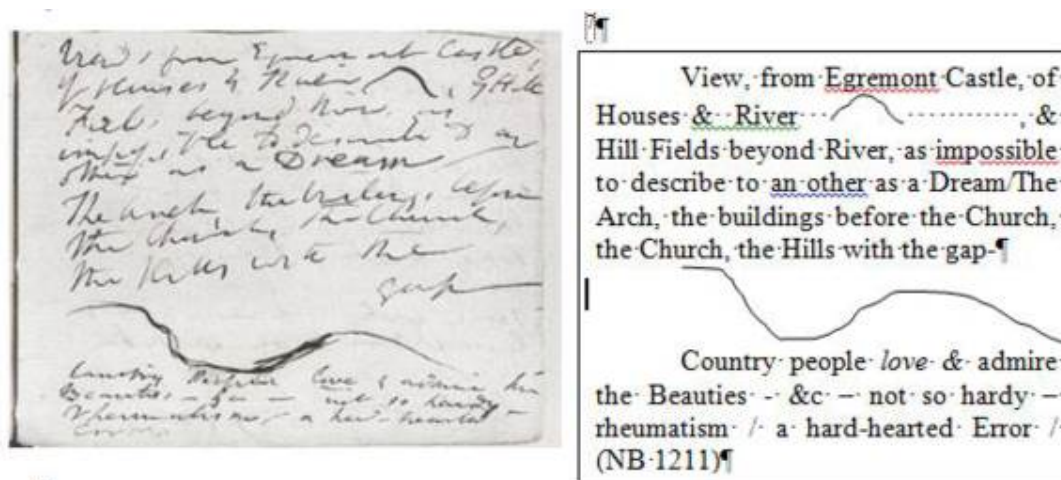 View, from Egremont Castle,
of Houses & River , & Hill
Fields beyond River, as
impossible to describe to an
other as a Dream
The Arch, the buildings before
the Church, the Church,
the Hills with the
gap —
Country People love & admire the
Beauties - &c — not so hardy –
Rheumatism / a hard-hearted –
View, from Egremont Castle, of
Houses & River , &
Hill Fields beyond River, as impossible
to describe to an other as a Dream/The
Arch, the buildings before the Church,
the Church, the Hills with the gap-¶
Country people love & admire
the Beauties - &c – not so hardy –
rheumatism / a hard-hearted Error /
(NB 1211)¶